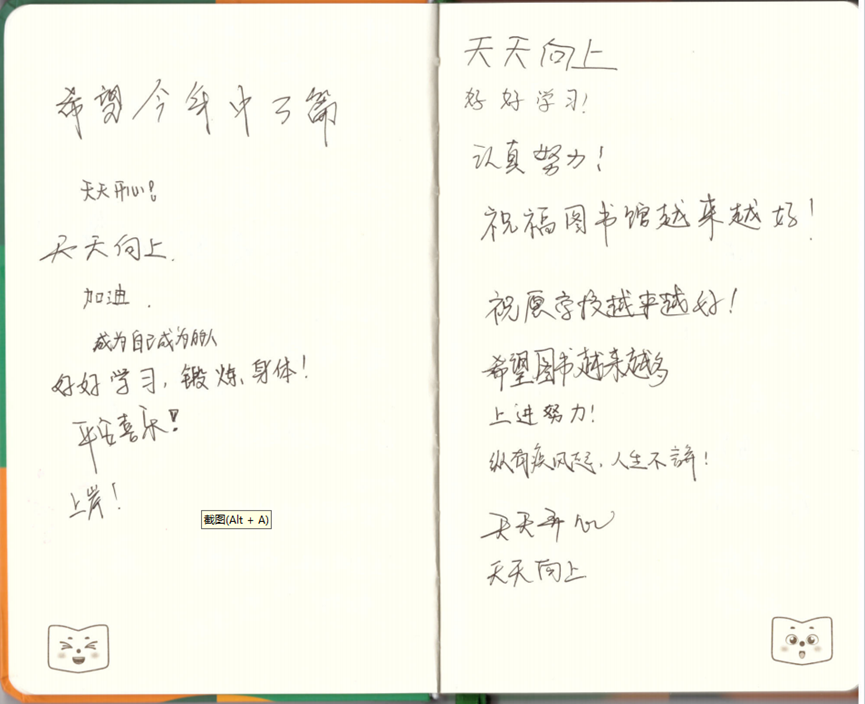 希望今年中了篇
天天开心!
天天向上.
加油.
成为自己成为的人
好好学习,锻炼身体!
平安喜乐!
上岸!
截图(Alt + A)
天天向上
好好学习!
认真努力!
祝福图书馆越来越好!
祝愿学校越来越好!
希望图书越来越多
上进努力!
纵有疾风起,人生不言弃!
天天开心
天天向上